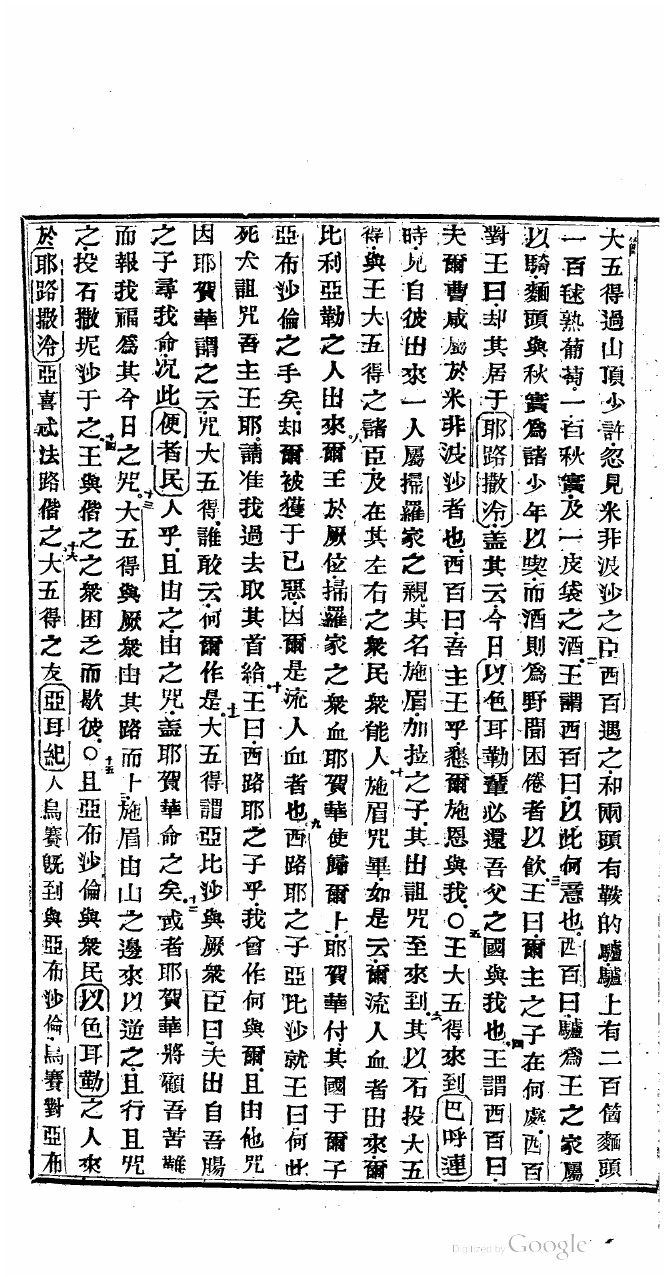 大五得過山頂少許忽見米非波沙之臣西百遇之和兩頭有鞍的驢驢上有二百箇麵頭
一百毬熟葡萄一百秋實及一皮袋之酒二王謂西百曰以此何意也西百曰驢為王之家屬
以騎麵頭與秋實為諸少年以喫而酒則為野間困倦者以飲三王曰爾主之子在何處西百
對王曰却其居于耶路撒冷蓋其云今日以色耳勒輩必還吾父之國與我也四王謂西百曰
夫爾曹咸屬於米非波沙者也西百曰吾主王乎懇爾施恩與我○五王大五得來到巴呼連
時見自彼出來一人屬掃羅家之親其名施眉加拉之子其出詛咒至來到六其以石投大五
得與王大五得之諸臣及在其左右之衆民衆能人七施眉咒畢如是云爾流人血者出來爾
比利亞勒之人出來爾王於厥位八掃羅家之衆血耶賀華使歸爾上耶賀華付其國于爾子
亞布沙倫之手矣却爾被獲于己惡因爾是流人血者也九西路耶之子亞比沙就王曰何此
死犬詛咒吾主王耶請准我過去取其首給十王曰西路耶之子乎我曾作何與爾且由他咒
因耶賀華謂之云咒大五得誰敢云何爾作是十一大五得謂亞比沙與厥衆臣曰夫出自吾腸
之子尋我命況此便者民人乎且由之由之咒蓋耶賀華命之矣十二或者耶賀華將顧吾苦難
而報我福為其今日之咒十三大五得與厥衆由其路而上施眉由山之邊來以逆之且行且咒
之投石撒坭沙于之十四王與偕之之衆困乏而歇彼○十五且亞布沙倫與衆民以色耳勒之人來
於耶路撒冷亞喜忒法路偕之十六大五得之友亞耳紀人烏賽既到與亞布沙倫烏賽對亞布
Digitized by Google